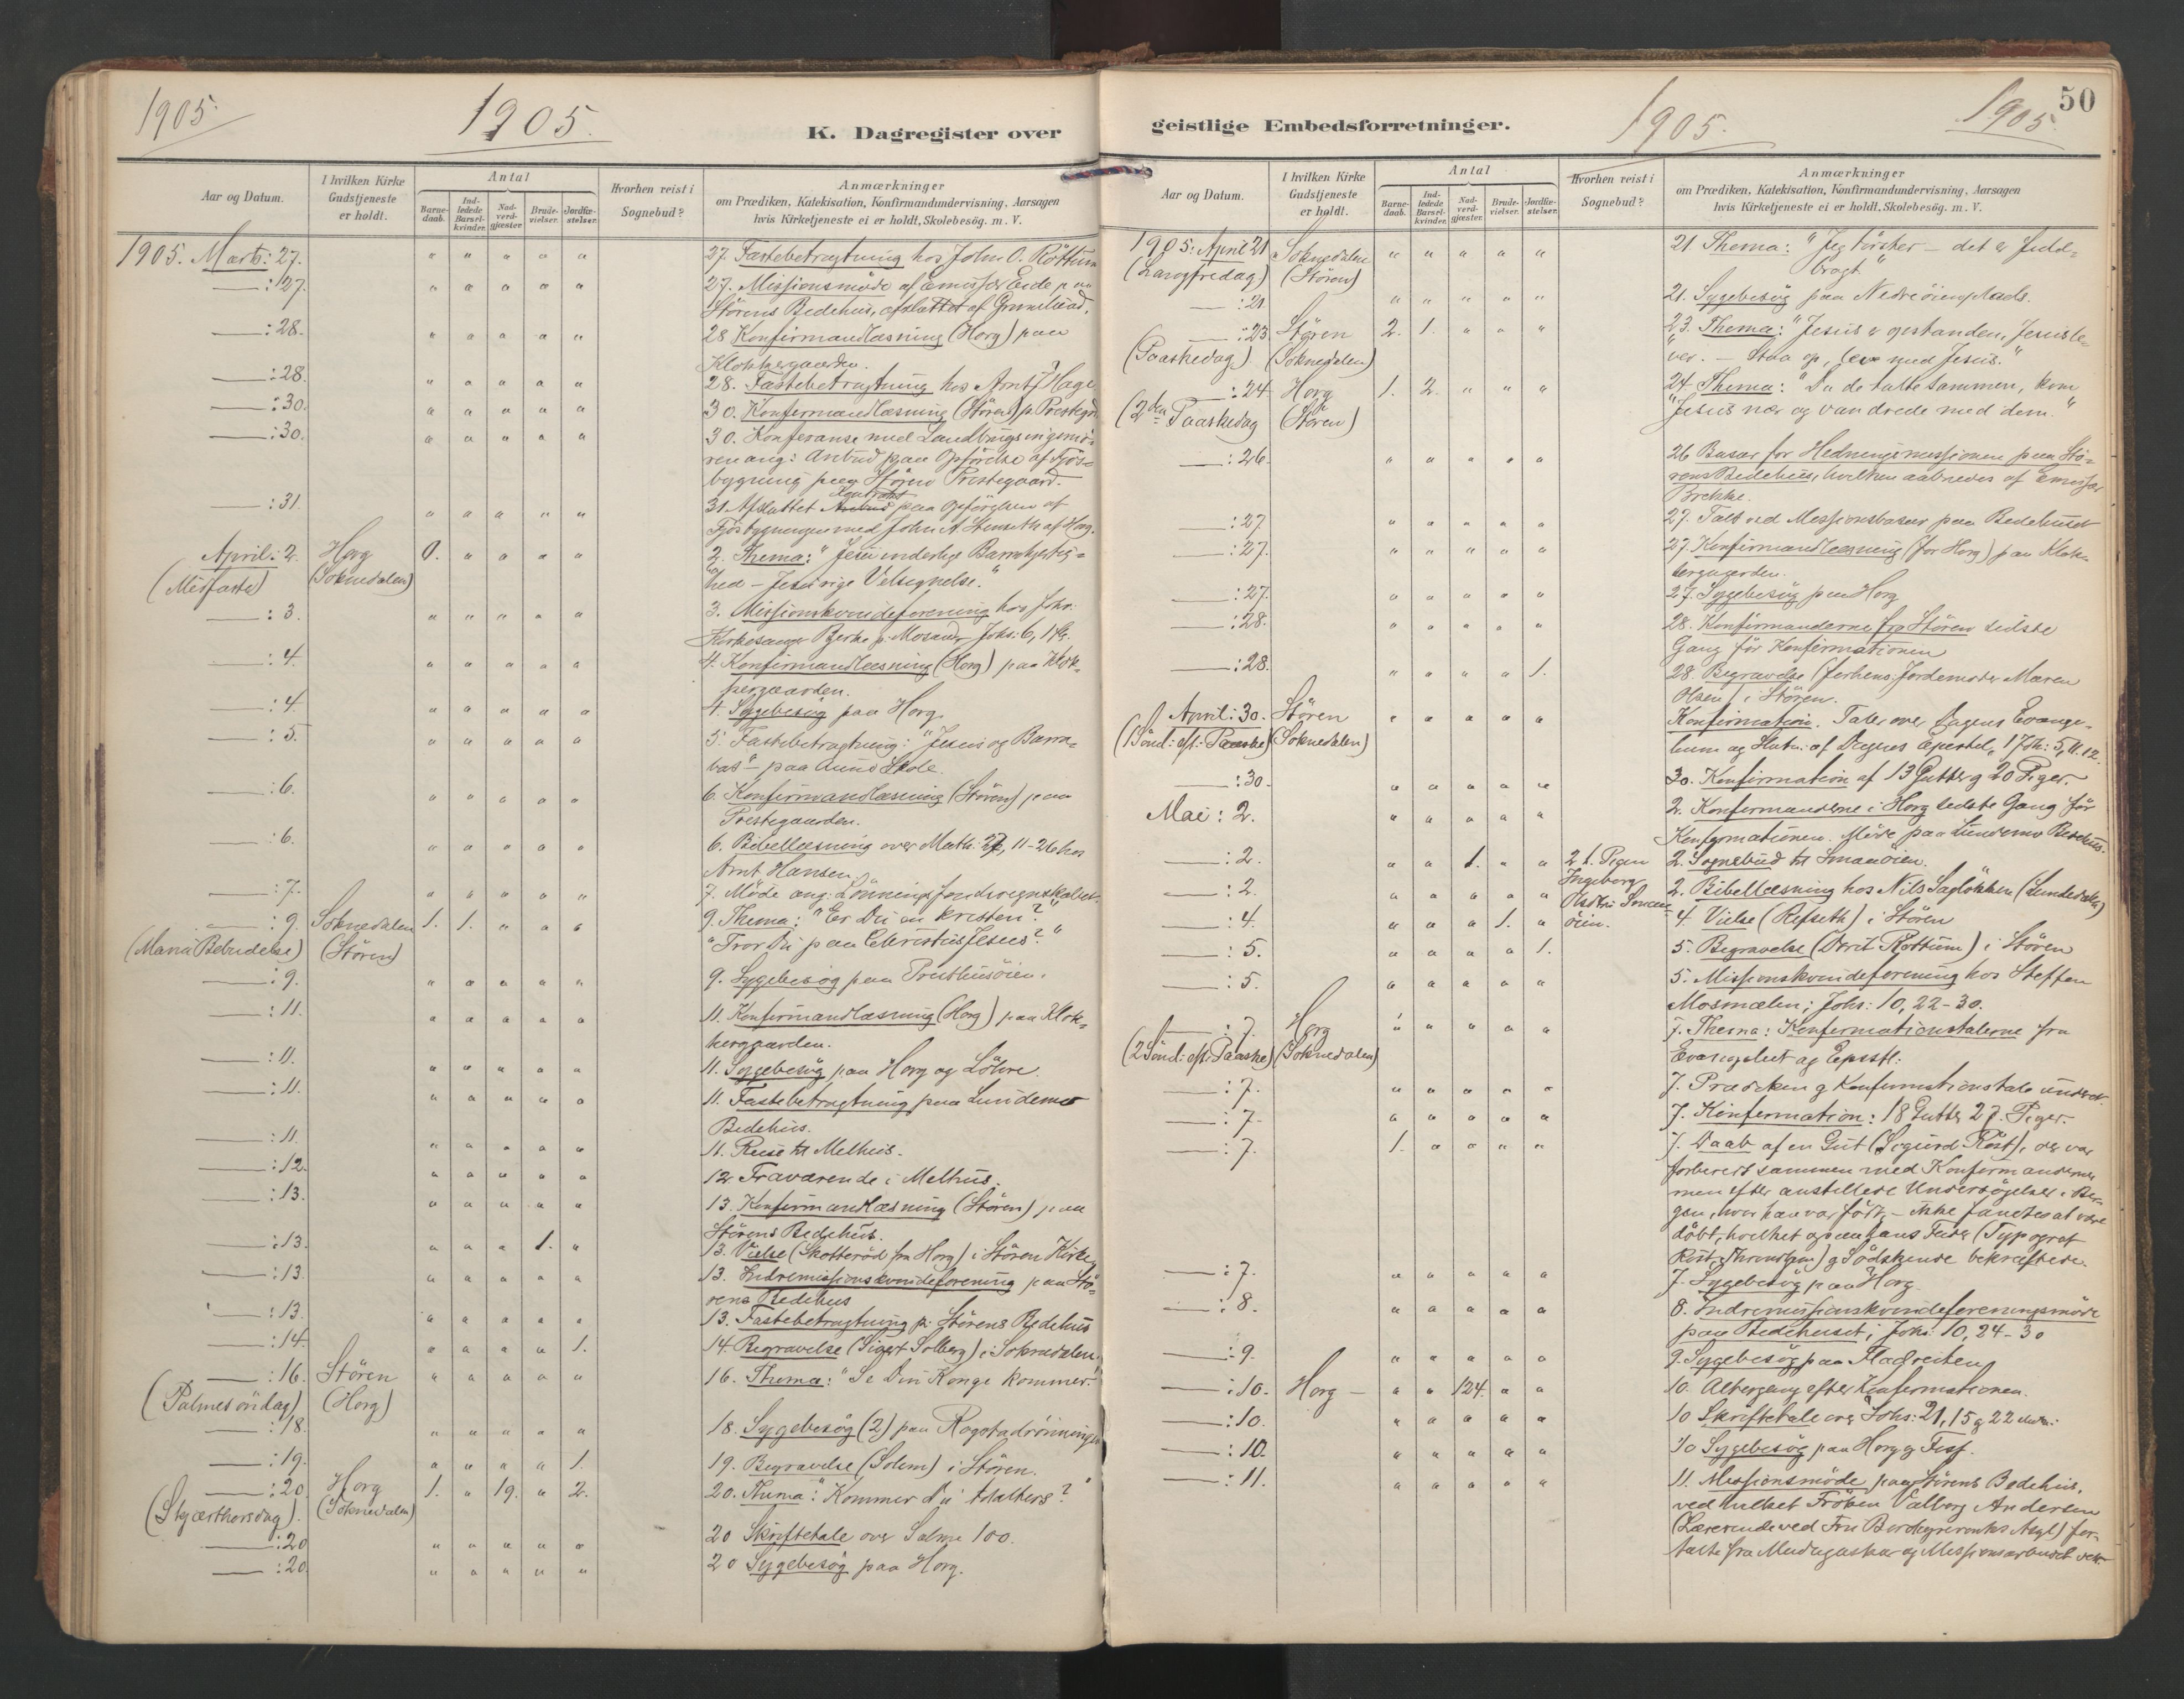 1905. 1905. K. Dagregister over
Aar og Datum. I hvilken Kirke Gudstjeneste er holdt. Antal Hvorhen reist i Sognebud? Anmærkninger
om Prædiken, Katekisation, Konfirmandundervisning, Aarsagen
hvis Kirketjeneste ei er holdt, Skolebesög. m. V.
Barnedaab. Indledede Barselkvinder. Nadverdgjæster. Brudevielser. Jordfæstelser.
1905. Marts: 27. " " " " " 27. Fastebetragtning hos John O. Röttum
—: 27. " " " " " 27. Missionsmöde af Emissær Eide paa
Störens Bedehus, afsluttet af
—: 28. " " " " " 28 Konfirmandlæsning (Horg) paa
Klokkergaarden.
—: 28. " " " " " 28. Fastebetragtning hos Arnt Hage
—: 30. " " " " " 30. Konfirmandlæsning (Stören) p. Prestegrd
—: 30. " " " " " 30. Konferanse med Landbrugsingeniö-
ren ang: Anbud paa Opförelse af Fjös-
bygning paa Stören Prestegaard.
—: 31. " " " " " 31. Afsluttet Kontrakt paa Opförelsen af
Fjösbygningen med John A. af Horg.
April: 2. Horg 0. " " " " 2. Thema: "Jesu inderlige Barmhjertig-
(Midfaste) (Soknedalen) hed – Jesu rige Velsignelse."
—: 3. " " " " " 3. Missionskvindeforening hos Fhv.
Kirkesanger Bjerke p. Mosand, Johs: 6, 1 flg.
—: 4. " " " " " 4. Konfirmandlæsning (Horg) paa Klok-
kergaarden.
—: 4. " " " " " 4. Sygebesög paa Horg.
—: 5. " " " " " 5. Fastebetragtning: "Jesus og Barra-
bas" – paa Aunes Skole.
—: 6. " " " " " 6. Konfirmandlæsning (Stören) paa
Prestegaarden.
—: 6. " " " " " 6. Bibellæsning over Math: 27, 11-26 hos
Arnt Hansen.
—: 7. " " " " " 7. Möde ang: Lönningsfondsregnskabet.
—: 9. Soknedalen 1. 1. " " " 9. Thema: "Er Du en kristen?"
(Maria Bebudelse) (Stören) "Tror Du paa Christus Jesus?"
—: 9. " " " " " 9. Sygebesög paa Presthusöien.
—: 11. " " " " " 11. Konfirmandlæsning (Horg) paa Klok-
kergaarden.
—: 11. " " " " " 11. Sygebesög paa Horg og Löhre.
—: 11. " " " " " 11. Fastebetragtning paa Lundemo
Bedehus.
—: 11. " " " " " 11. Reise til Melhus.
—: 12. " " " " " 12 Fraværende i Melhus.
—: 13. " " " " " 13. Konfirmandlæsning (Stören) paa
Störens Bedehus.
—: 13. " " " 1. " 13. Vielse (Skotteröd fra Horg) i Stören Kirke
—: 13. " " " " " 13. Indremissionskvindeforening paa Stö-
rens Bedehus
—: 13. " " " " " 13. Fastebetragtning p. Störens Bedehus
—: 14. " " " " 1. 14. Begravelse (Sigert Solberg) i Soknedalen.
—: 16. Stören " " " " " 16. Thema: "Se Din Konge kommer."
(Palmesöndag) (Horg)
—: 18. " " " " " 18. Sygebesög (2) paa
—: 19. " " " " 1. 19. Begravelse (Solem) i Stören.
—: 20. Horg 1. " 19. " 2. 20. Thema: "Kommer du til Alters?"
(Skjærthorsdag). (Soknedalen)
—: 20 " " " " " 20 Skriftetale over Salme 100.
—: 20. " " " " " 20 Sygebesög paa Horg.
geistlige Embedsforretninger. 1905. 1905. 50
Aar og Datum. I hvilken Kirke Gudstjeneste er holdt. Antal Hvorhen reist i Sognebud? Anmærkninger
om Prædiken, Katekisation, Konfirmandundervisning, Aarsagen
hvis Kirketjeneste ei er holdt, Skolebesög. m. V.
Barnedaab. Indledede Barselkvinder. Nadverdgjæster. Brudevielser. Jordfæstelser.
1905: April 21 Soknedalen " " " " " 21. Thema: "Jeg törster – det er fuld-
(Langfredag) (Stören) bragt"
—: 21. " " " " " 21. Sygebesög paa Nedreöienplads.
—: 23. Stören 2. 1. " " " 23. Thema: "Jesus er opstanden, Jesus le-
(Paaskedag) (Soknedalen) ver. – Staa op, lev med Jesus."
—: 24. Horg 1. 2. " " " 24. Thema: "Da de talte sammen, kom
(2den Paaskedag (Stören) Jesus nær og vandrede med dem."
—: 26. " " " " " 26 Basar for Hedningemissionen paa Stö-
rens Bedehus, hvilken aabnedes af Emissær
Brekke.
—: 27 " " " " " 27. Talt ved Missionsbasar paa Bedehuset
—: 27. " " " " " 27. Konfirmandlæsning (for Horg) paa Klok-
kergaarden.
—: 27. " " " " " 27. Sygebesög paa Horg
—: 28. " " " " " 28. Konfirmanderne fra Stören sidste
Gang för Konfirmationen
—: 28. " " " " 1. 28. Begravelse (forhens Jordemoder Maren
Olsen) i Stören.
April: 30. Stören " " " " " Konfirmation. Taler over Dagens Evange-
(1Sönd: eft: Paaske) (Soknedalen) lium og Slutn: af Dagens Epistel, 1 Joh: 5, 11. 12.
—: 30. " " " " " 30. Konfirmation af 13 Gutter og 20 Piger.
Mai: 2. " " " " " 2. Konfirmanderne i Horg sidste Gang för
Konfirmationen. Möde paa Lundemo Bedehus.
—: 2. " " 1. " " 2 t. Pigen Ingeborg 2. Sognebud til Smaaöien.
—: 2. " " " " " 2. Bibellæsning hos Nils Saglökken (Lundedalen)
—: 4. " " " 1. " öien. 4. Vielse (Refseth) i Stören
—: 5. " " " " 1. 5. Begravelse (Rottum) i Stören
—: 5. " " " " " 5. Missionskvindeforening hos Steffen
Mosmælen; Johs: 10, 22-30.
—: 7. Horg " " " " " 7. Thema: Konfirmationstalerne fra
(2 Sönd: eft: Paaske) (Soknedalen) Evangeliet og Epistl:
—: 7. " " " " " 7. Prædiken og Konfirmationstale
—: 7. " " " " " 7. Konfirmation: 18 Gutter 27. Piger.
—: 7. 1. " " " " 7. Daab af en Gut (Sigurd Röst), der var
forberedt sammen med Konfirmanderne
men efter anstillede Undersögelser i Ber-
gen, hvor han var födt, – ikke fandtes at være
döbt, hvilket ogsaa hans Fader (Typograf
Röst, Throndhjem) og Södskende bekræftede.
—: 7. " " " " " 7. Sygebesög paa Horg.
—: 8. " " " " " 8. Indremissionskvindeforeningsmöde
paa Bedehuset; Joh: 10, 24-30
—: 9. " " " " " 9. Sygebesög paa Fladreiten
—: 10. Horg – " " 124. " " 10. Altergang efter Konfirmationen.
—: 10. " " " " " 10 Skriftetale over Johs: 21, 15 og 22
—: 10. " " " " " 10 Sygebesög paa Horg og
—: 11. " " " " " 11. Missionsmöde paa Störens Bedehus,
ved hvilket Fröken Valborg Andersen
(Lærerinde ved Fru Borchgrevinks Asyl) for-
talte fra Madagaskar og Missionsarbeidet